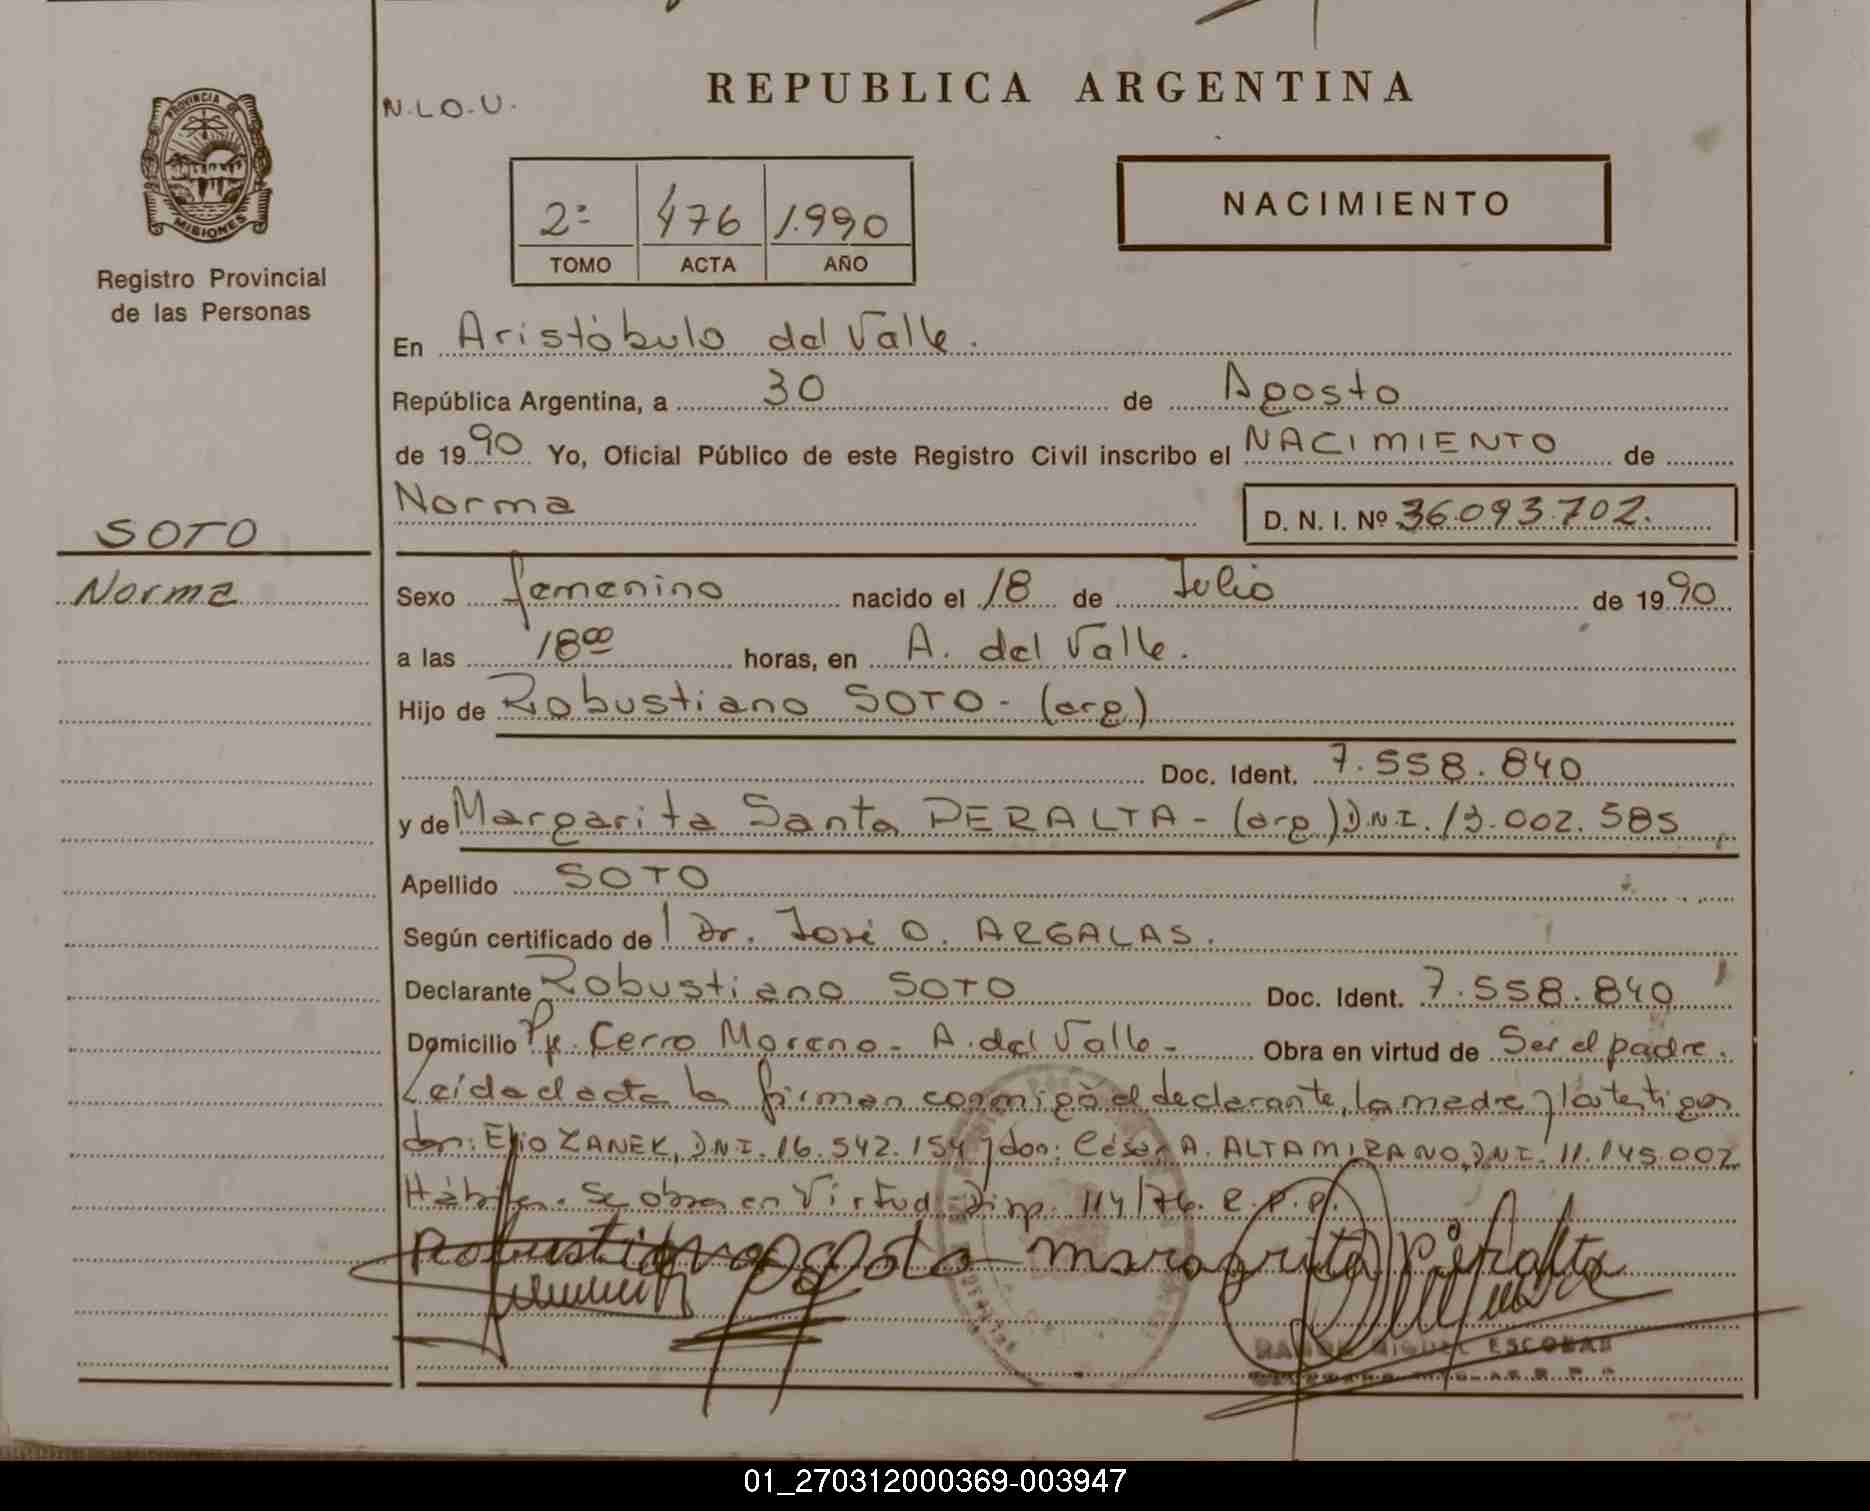 N.L.O.U.
REPUBLICA ARGENTINA
PROVINCIA DE
MISIONES
Registro Provincial
de las Personas
2º 476 1.990
TOMO ACTA AÑO
NACIMIENTO
En Aristóbulo del Valle.
República Argentina, a 30 de Agosto
de 1990 Yo, Oficial Público de este Registro Civil inscribo el NACIMIENTO de
Norma D. N. I. Nº 36.093.702.
SOTO
Norma
Sexo femenino nacido el 18 de Julio de 1990
a las 18 00 horas, en A. del Valle.
Hijo de Robustiano SOTO - (arg)
Doc. Ident. 7.558.840
y de Margarita Santa PERALTA - (arg) D.N.I. 13.002.585
Apellido SOTO
Según certificado de Dr. José O. ARGALAS.
Declarante Robustiano SOTO Doc. Ident. 7.558.840
Domicilio Pje. Cerro Moreno - A. del Valle - Obra en virtud de Ser el padre.
Leida el acta la firman conmigo el declarante, la madre y los testigos
don: Elio ZANEK, D.N.I. 16.542.154 y don: César A. ALTAMIRANO, D.N.I. 11.145.002
Hábiles. Se obra en Virtud Disp. 114/76. R.P.P.
Robustiano Soto Margarita Peralta
RAMON MIGUEL ESCOBAR
01_270312000369-003947